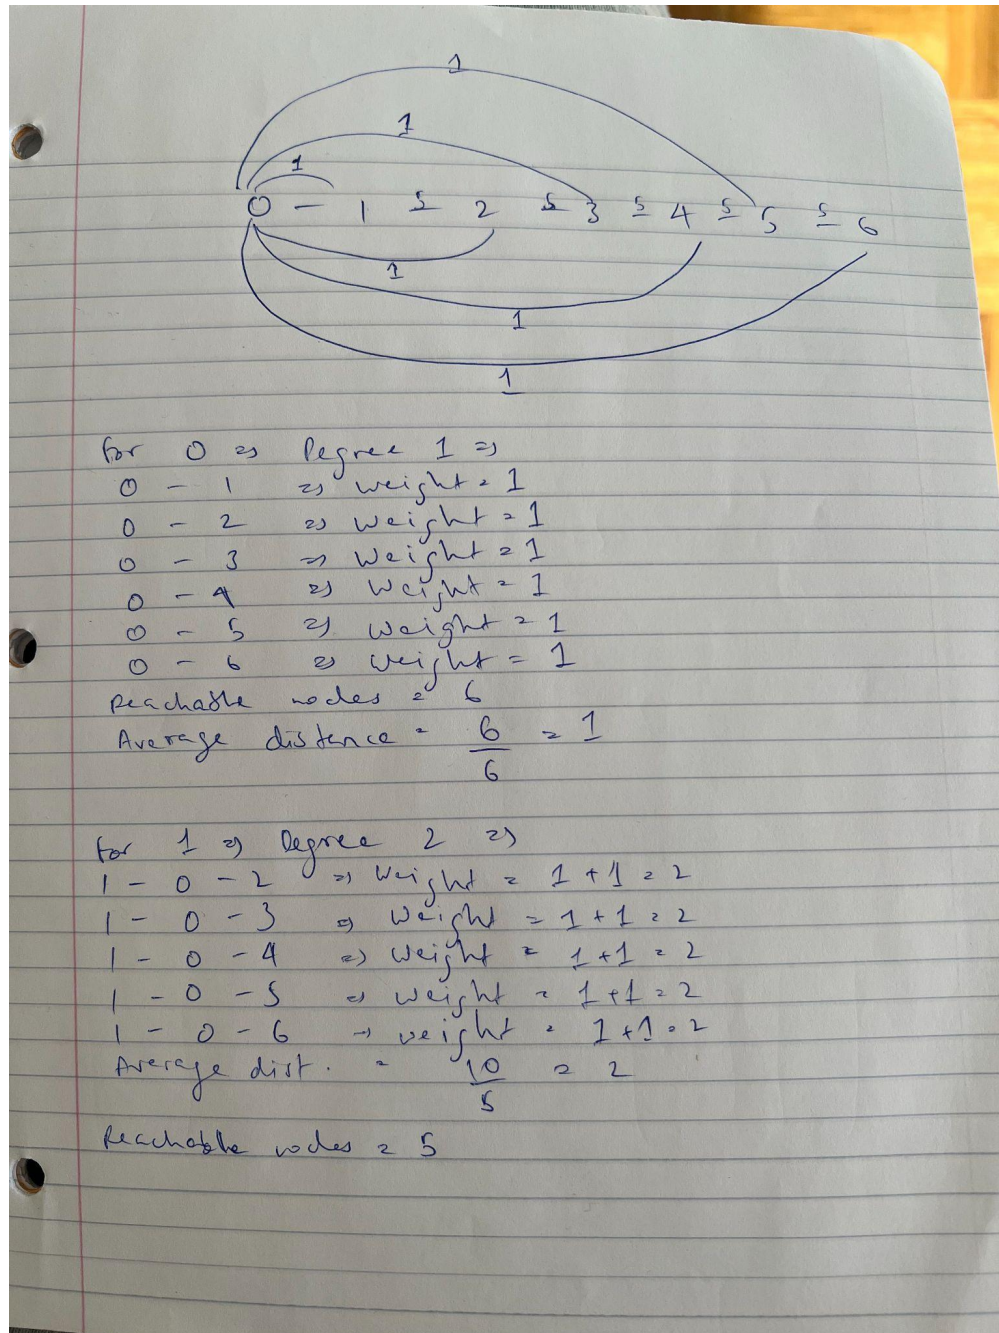 1
1
1
0 — 1 5 2 5 3 5 4 5 5 5 6
1
1
1
for 0 => Degree 1 =>
0 - 1 => weight = 1
0 - 2 => weight = 1
0 - 3 => weight = 1
0 - 4 => weight = 1
0 - 5 => weight = 1
0 - 6 => weight = 1
Reachable nodes = 6
Average distance = 6/6 = 1
for 1 => Degree 2 =>
1 - 0 - 2 => weight = 1 + 1 = 2
1 - 0 - 3 => weight = 1 + 1 = 2
1 - 0 - 4 => weight = 1 + 1 = 2
1 - 0 - 5 => weight = 1 + 1 = 2
1 - 0 - 6 → weight = 1 + 1 = 2
Average dist. = 10/5 = 2
Reachable nodes = 5